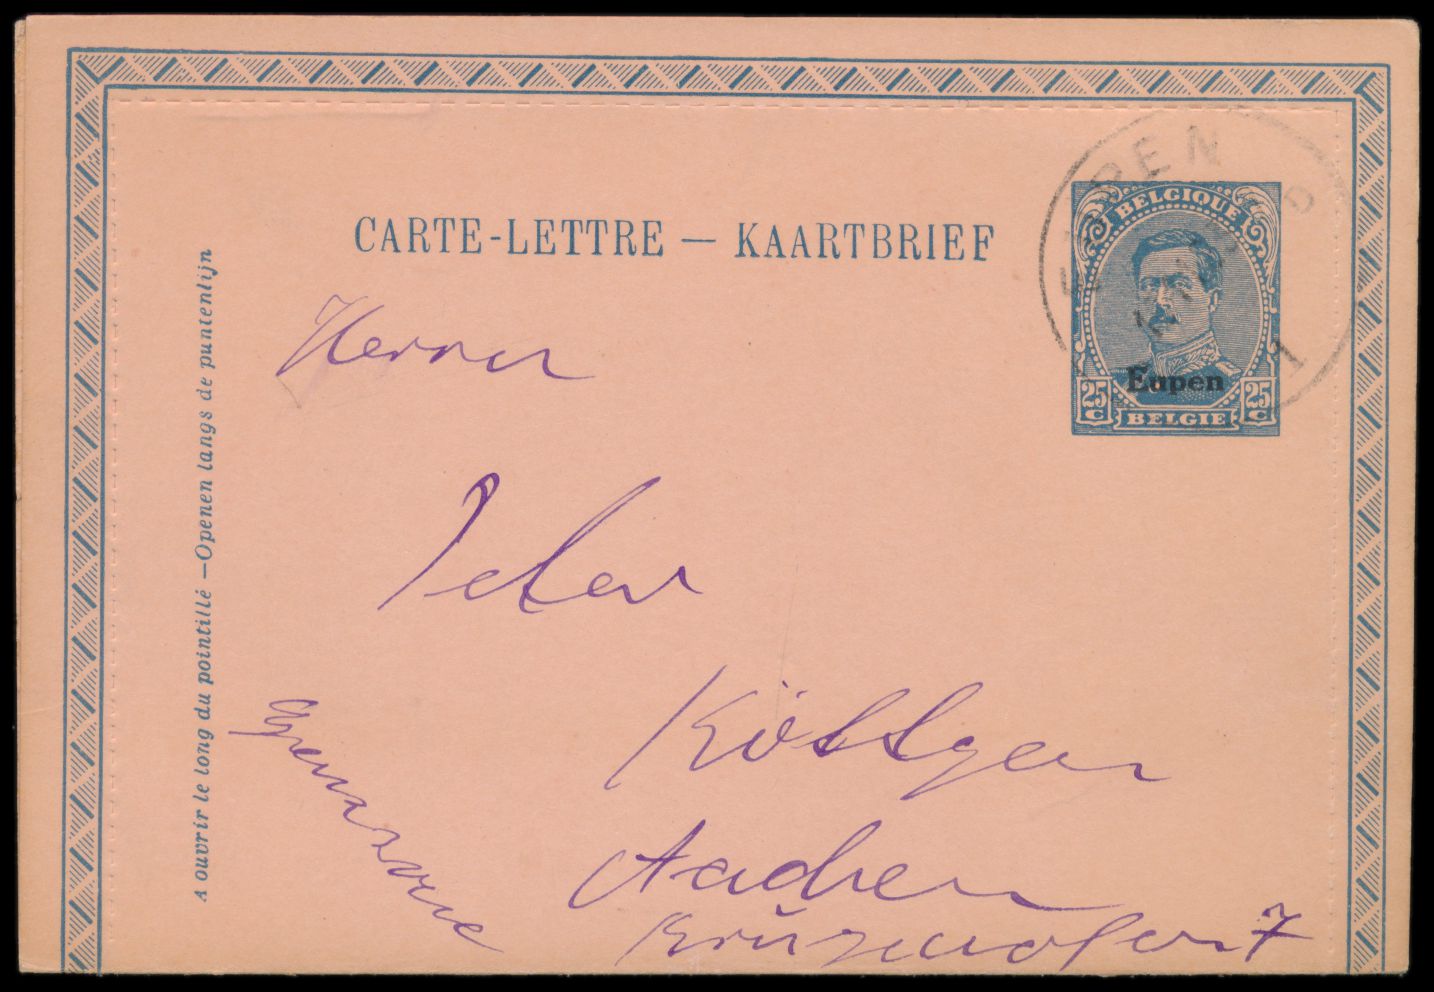 CARTE-LETTRE — KAARTBRIEF
A ouvrir le long du pointillé — Openen langs de puntentijn
EUPEN
1
BELGIQUE
Eupen
25 C BELGIE 25 C
Herrn
Peter
Köttgen
Aachen
7
Grenzzone